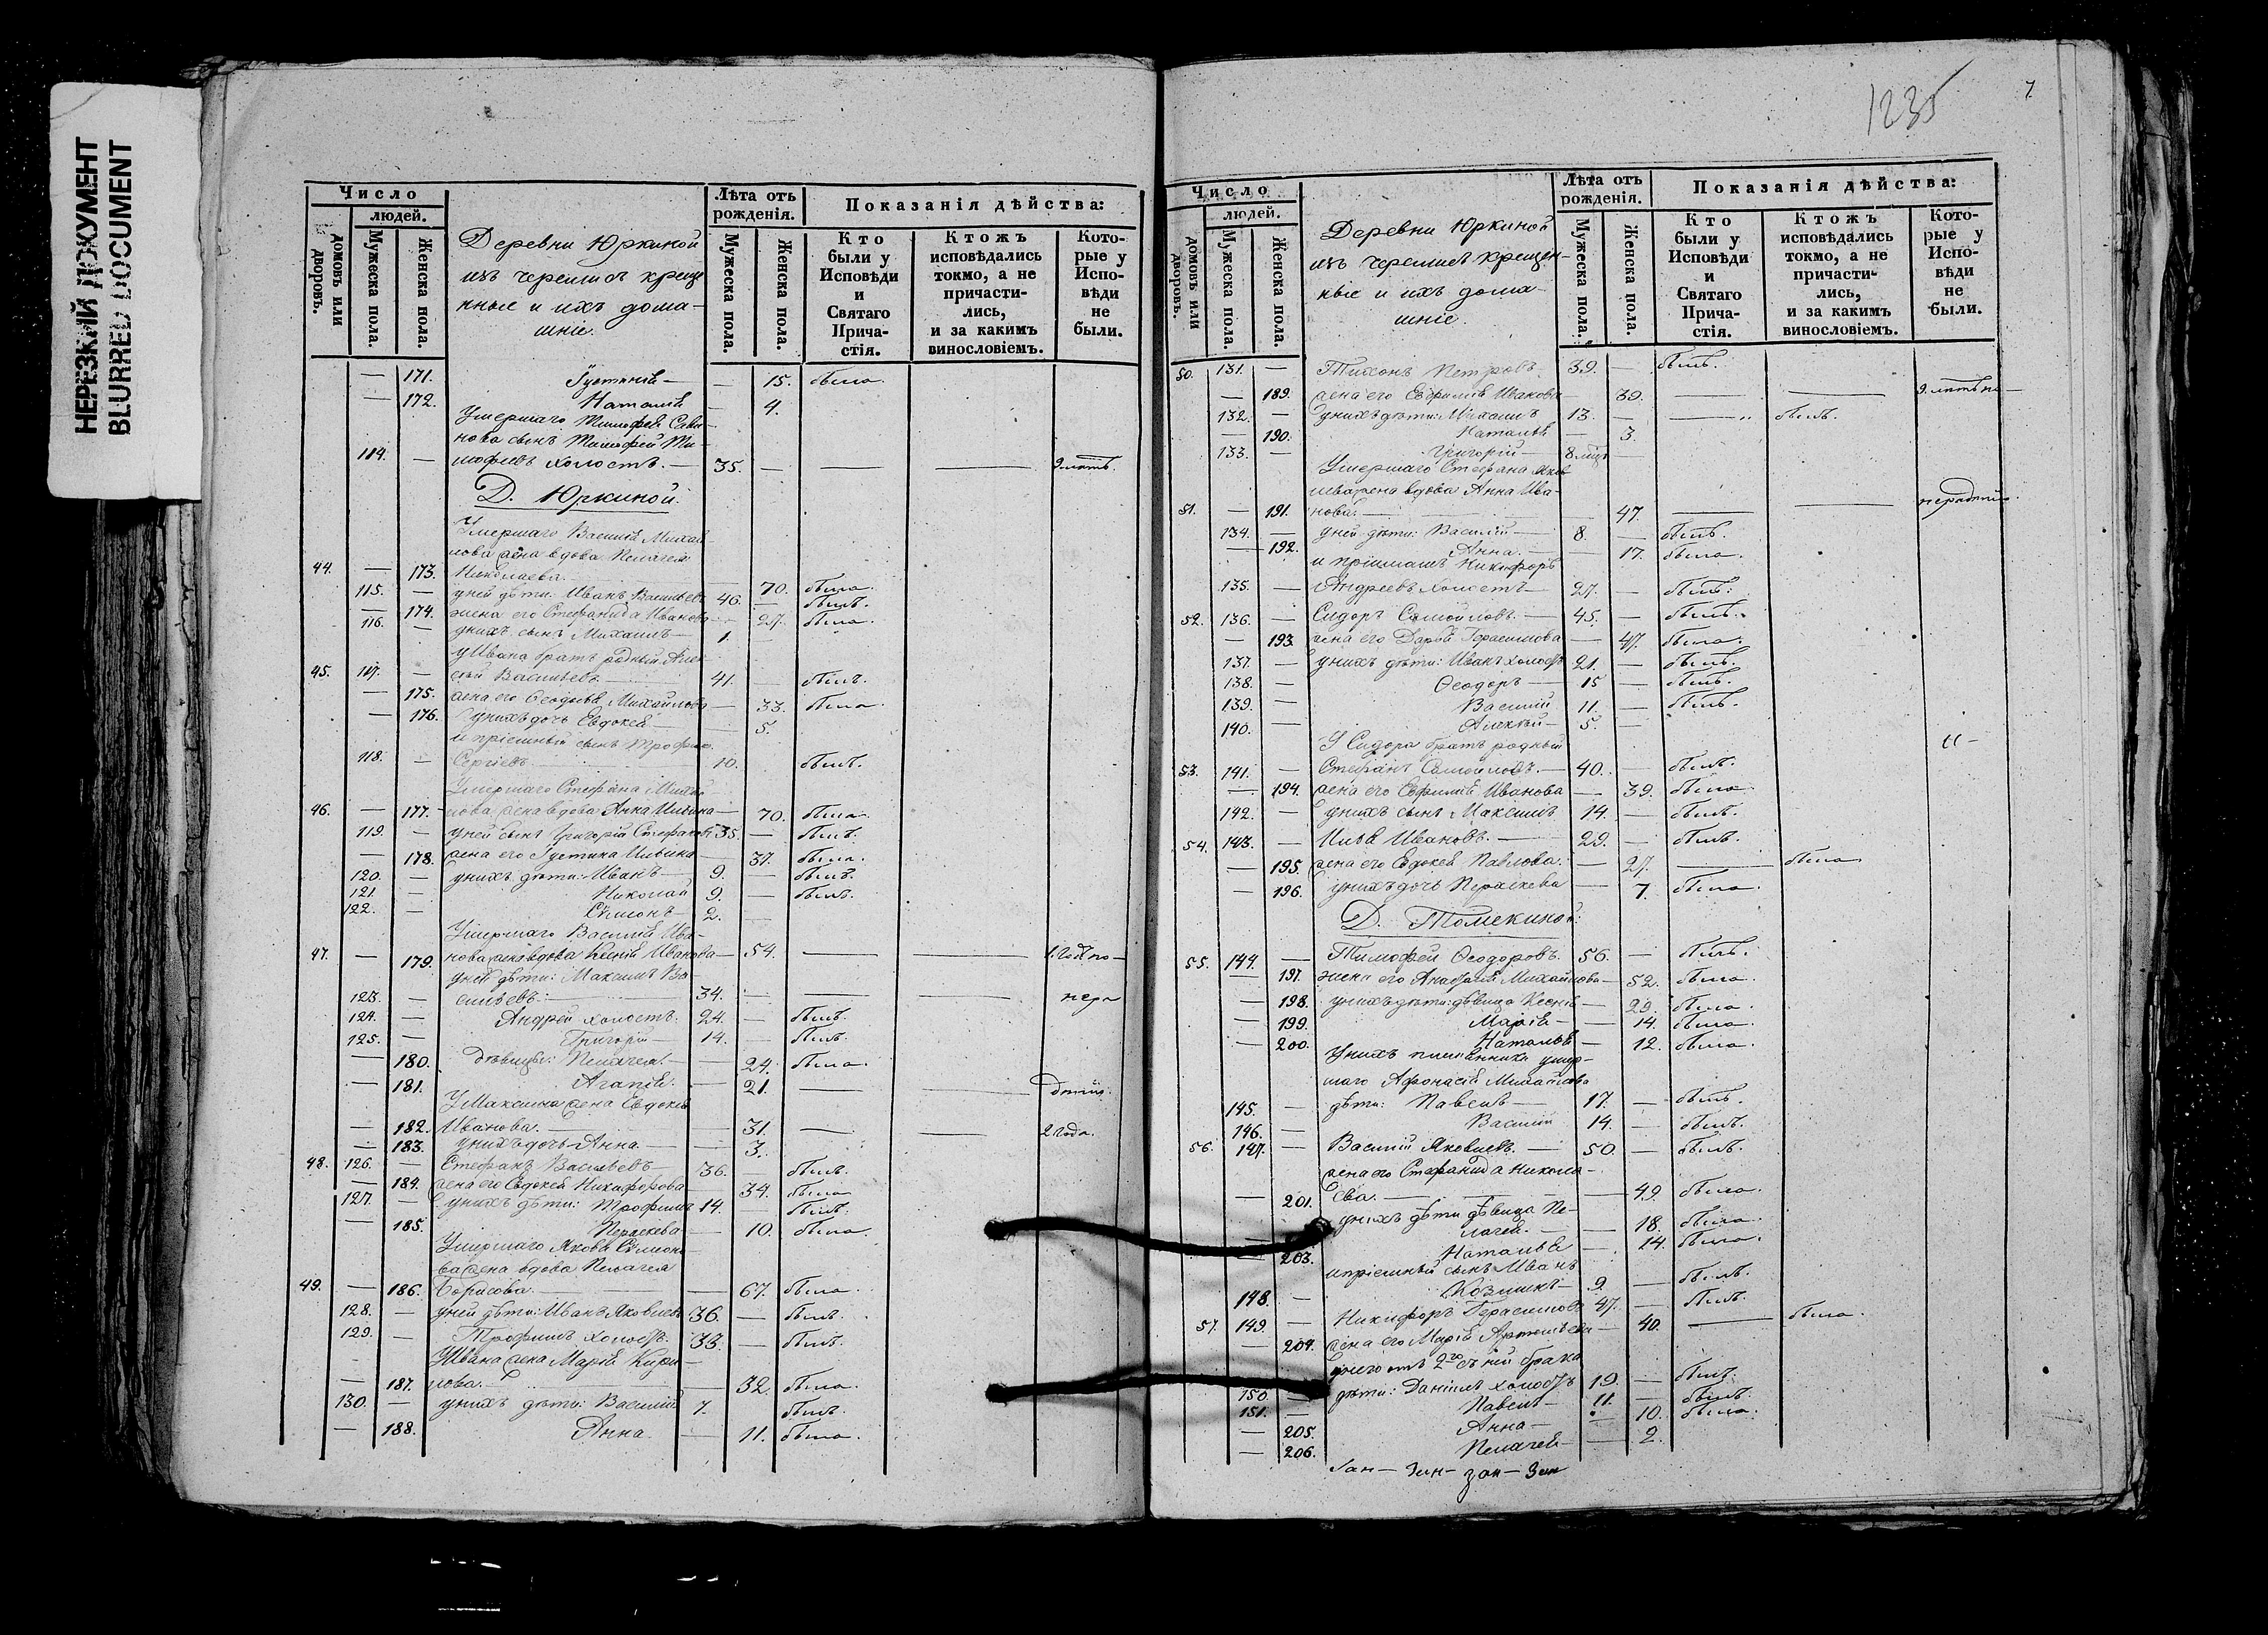 НЕРЕЗКИЙ ДОКУМЕНТ
BLURRED DOCUMENT
Число
людей.
домовъ или дворовъ.
Мужеска пола.
Женска пола.
Деревни Юркиной
изъ черемисъ креще
нные и ихъ дома-
шніе.
Лѣта отъ рожденія.
Мужеска пола.
Женска пола.
Показанія дѣйства:
Кто были у Исповѣди и Святаго Прича-стія.
Ктожъ исповѣдались токмо, а не причасти-лись, и за какимъ винословіемъ.
Кото-рые у Испо-вѣди не были.
— 171. Іустинія — — 15. была.
— 172. Наталія — 4.
Умершаго Тимофея Сави-
нова сынъ Тимофей Ти-
114. — мофеевъ холостъ. — 35. — — — 9 лѣтъ.
Д. Юркиной.
Умершаго Василія Михай-
лова жена вдова Пелагея
44. — 173. Николаева. — 70. была.
115. — у ней дѣти: Иванъ Васильевъ 46. — былъ.
— 174. жена его Стефанида Иванова — 27. была.
116. — у нихъ сынъ Михаилъ — 1.
у Ивана братъ родный Алек-
45. 117. — сѣй Васильевъ — 41. — былъ.
— 175. жена его Ѳеодосья Михайлова — 33. была.
— 176. у нихъ дочь Евдокея — 5.
и пріемный сынъ Трофим.
118. — Сергіевъ — 10. былъ.
Умершаго Стефана Михай-
46. — 177. лова жена вдова Анна Ильина — 70. была.
119. — у ней сынъ Григорій Стефановъ 35. — былъ.
— 178. жена его Іустина Ильина — 37. была.
120. — у нихъ дѣти: Иванъ — 9. — былъ.
121. — Николай 9. — былъ.
122. — Сѣмионъ — 2. —
Умершаго Василія Ива-
47. — 179. нова жена вдова Ксенія Иванова — 54. — — 1. годъ по-
у ней дѣти: Максимъ Ва
123. — сильевъ: — 34. — — — нера
124. — Андрей холостъ. 24. — былъ.
125. — Григорій — 14. — былъ.
— 180. дѣвицы: Пелагея. — — 24. была.
— 181. Агапія. — 21. — — дѣнію.
У Максима жена Евдокія
— 182. Иванова. — — 31. — — 2 года.
— 183. у нихъ дочь Анна — — 3.
48. 126. — Стефанъ Васильевъ — 36. — былъ.
— 184. жена его Евдокея Никифорова 34. была
127. — у нихъ дѣти: Трофимъ 14. — былъ.
— 185. Пераскева — 10. была.
Умершаго Якова Сѣмионо-
ва жена вдова Пелагея
49. — 186. Борисова. — — 67. была.
128. — у ней дѣти: Иванъ Яковлевъ 36. — былъ.
129. — Трофимъ холостъ. 33. — былъ.
У Ивана жена Марія Кири-
— 187. лова. — — 32. была.
130. — у нихъ дѣти: Василій 7. былъ.
— 188. Анна. — 11. была.
1235
7
Число
людей.
домовъ или дворовъ.
Мужеска пола.
Женска пола.
Деревни Юркиной
изъ черемисъ крещен-
ные и ихъ дома-
шніе.
Лѣта отъ рожденія.
Мужеска пола.
Женска пола.
Показанія дѣйства:
Кто были у Исповѣди и Святаго Прича-стія.
Ктожъ исповѣдались токмо, а не причасти-лись, и за какимъ винословіемъ.
Кото-рые у Испо-вѣди не были.
50. 131. — Тихонъ Петровъ. 39. — былъ.
— 189. жена его Евфимія Иванова — 39. — — 9 лѣтъ по —
132. — у нихъ дѣти: Михаилъ 13. — — былъ.
— 190. Наталья — 3.
133. — Григорій — 8 мцъ —
Умершаго Стефана Яков
лева жена вдова Анна Ива-
51. — 191. нова. — — 47. — — нерадѣнію.
134. — у ней дѣти: Василій — 8. — былъ.
— 192. Анна. — — 17. была.
и пріимышъ Никифоръ
135. — Андреевъ холостъ — 27. — былъ.
52. 136. — Сидоръ Самойловъ. — 45. — былъ.
— 193. жена его Дарья Герасимова — 47. была.
137. — у нихъ дѣти: Иванъ холостъ 21. — былъ.
138. — Ѳеодоръ — 15 — былъ.
139. — Василій 11. — былъ.
140. — Алексѣй — 5. —
У Сидора братъ родный
53. 141. — Стефанъ Самойловъ. — 40. — былъ.
— 194. жена его Евфимія Иванова — 39. была
142. — у нихъ сынъ Максимъ 14. — былъ.
54. 143. — Илья Ивановъ. — 29. — былъ.
— 195. жена его Евдокея Павлова. — 27. — была
— 196. у нихъ дочь Пераскева — 7. была.
Д. Томекиной:
55. 144. — Тимофей Ѳеодоровъ. 56. — былъ.
— 197. жена его Анастасія Михайлова — 52. была.
— 198. у нихъ дѣти: дѣвица Ксенія — 29. была.
— 199. Марія — — 14. была.
— 200. Наталья — 12. была.
У нихъ племянника умер-
шаго Афонасія Михайлова
145. — дѣти: Павелъ — 17. — былъ.
146. — Василій 14. — былъ.
56. 147. — Василій Яковлевъ. — 50. — былъ.
жена его Стефанида Никола-
— 201. ева. — — 49. была.
у нихъ дѣти дѣвица Пе-
лагея. — — 18. была.
— 203. Наталья — 14. была.
и пріемный сынъ Иванъ
148. — Козминъ — 9. — былъ.
57. 149. — Никифоръ Герасимовъ 47. — былъ.
— 204. жена его Марія Артемьева — 40. — была.
у него отъ 2го съ ней брака
150. — дѣти: Даніилъ холостъ 19. — былъ.
151. — Павелъ — 11. — былъ.
— 205. Анна — — 10. была.
— 206. Пелагея — — 2.